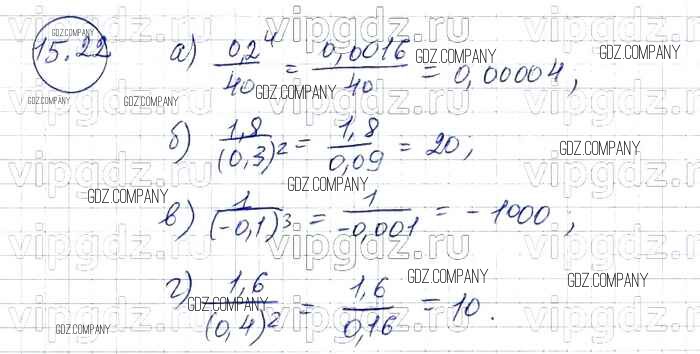 15.22 а) 0,2⁴/40 = 0,0016/40 = 0,00004;
б) 1,8/(0,3)² = 1,8/0,09 = 20;
в) 1/(-0,1)³ = 1/-0,001 = -1000;
г) 1,6/(0,4)² = 1,6/0,16 = 10.
GDZ.COMPANY
GDZ.COMPANY
GDZ.COMPANY
GDZ.COMPANY
GDZ.COMPANY
GDZ.COMPANY
GDZ.COMPANY
GDZ.COMPANY
GDZ.COMPANY
GDZ.COMPANY
GDZ.COMPANY
GDZ.COMPANY
GDZ.COMPANY
GDZ.COMPANY
vipgdz.ru
vipgdz.ru
vipgdz.ru
vipgdz.ru
vipgdz.ru
vipgdz.ru
vipgdz.ru
vipgdz.ru
vipgdz.ru
vipgdz.ru
vipgdz.ru
vipgdz.ru